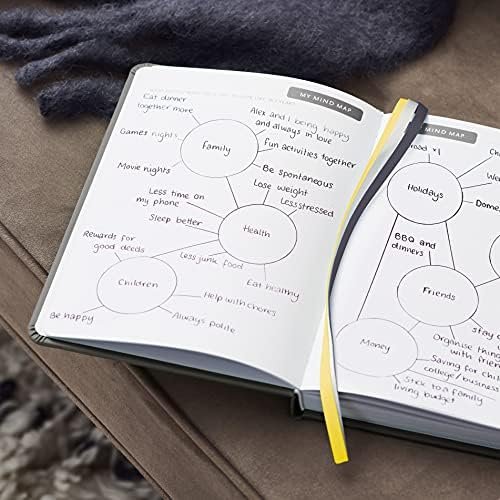 MY MIND MAP
Eat dinner
together more
Alex and I being happy
and always in love
Games nights
Family
Fun activities together
Movie nights
Be spontaneous
Lose weight
Less time on
my phone
Less stressed
Sleep better
Health
Rewards for
good deeds
Less junk food
Eat healthy
Children
Help with chores
Be happy
Always polite
MIND MAP
Holidays
BBQ and
dinners
Friends
Money
Organise
with
Saving for
college/
Stick to a family
living budget